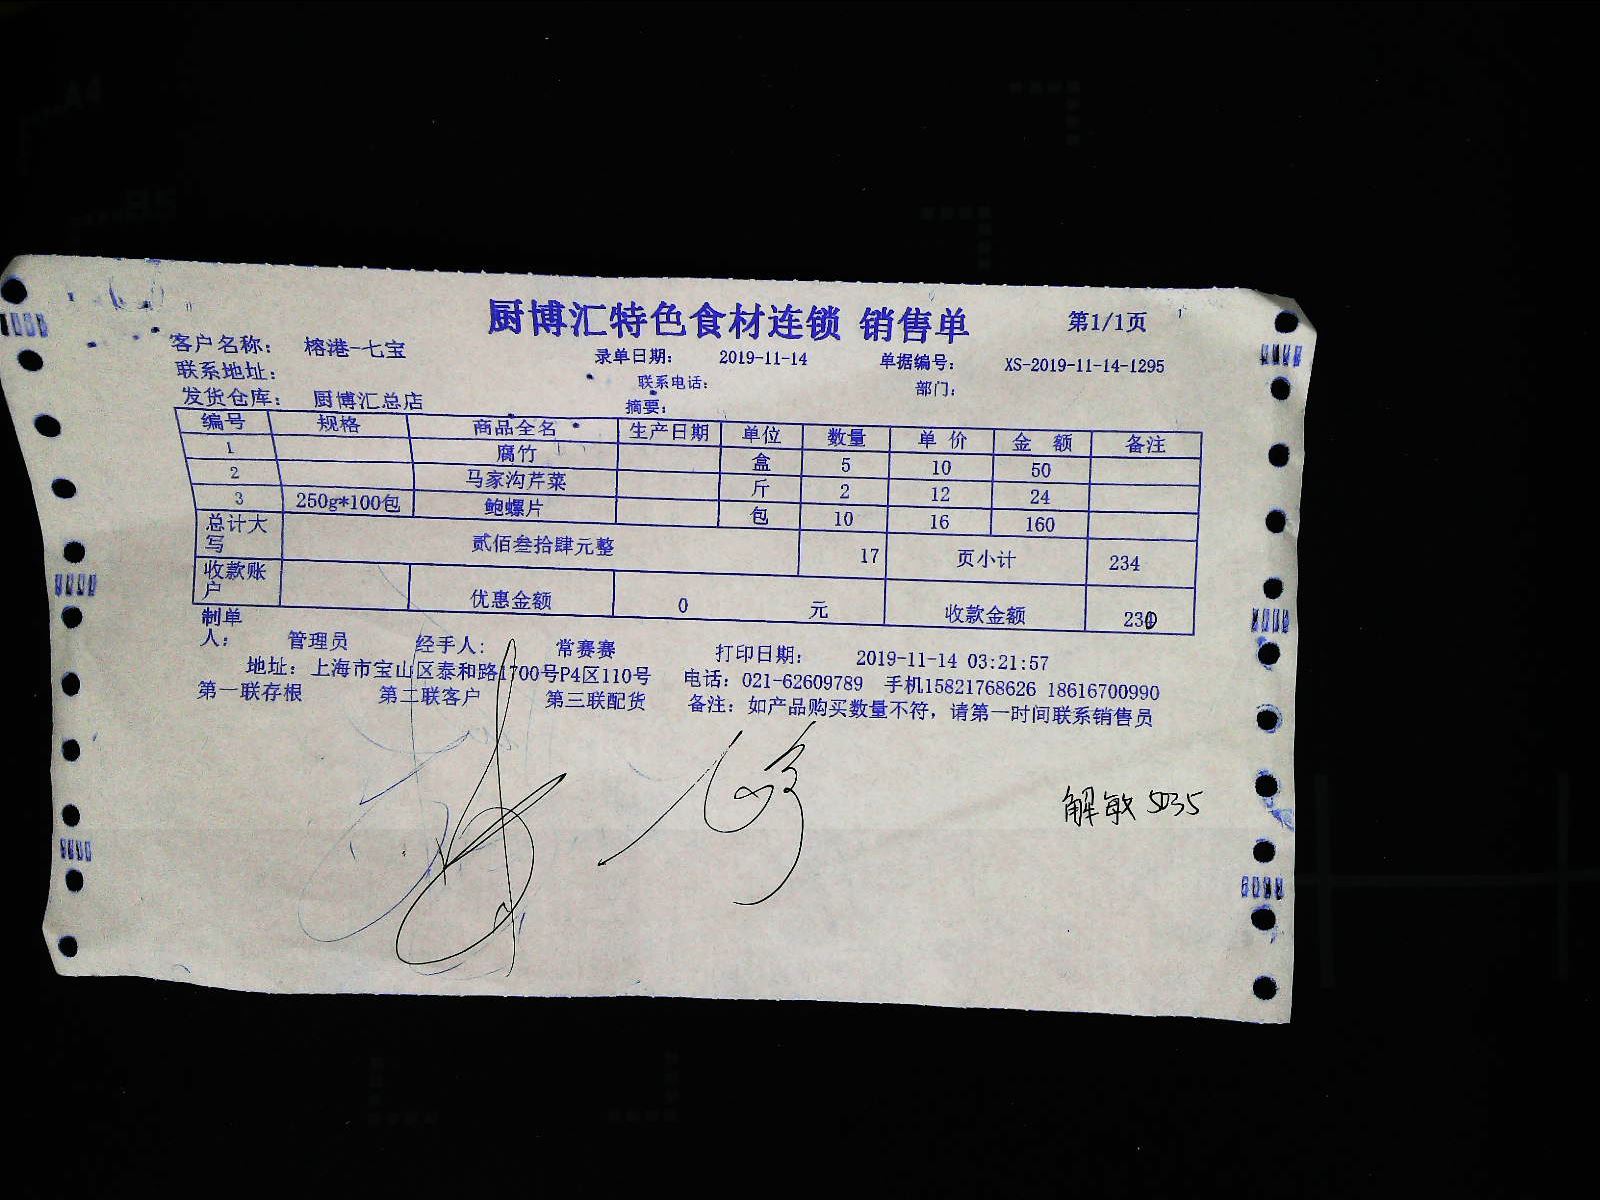 厨博汇特色食材连锁 销售单 第1/1页
客户名称： 榕港-七宝 录单日期： 2019-11-14 单据编号： XS-2019-11-14-1295
联系地址： 联系电话： 部门：
发货仓库： 厨博汇总店 摘要：
编号 规格 商品全名 生产日期 单位 数量 单 价 金 额 备注
1 腐竹 盒 5 10 50
2 马家沟芹菜 斤 2 12 24
3 250g*100包 鲍螺片 包 10 16 160
总计大写 贰佰叁拾肆元整 17 页小计 234
收款账户 优惠金额 0 元 收款金额 230
制单人： 管理员 经手人： 常赛赛 打印日期： 2019-11-14 03:21:57
地址：上海市宝山区泰和路1700号P4区110号 电话：021-62609789 手机15821768626 18616700990
第一联存根 第二联客户 第三联配货 备注：如产品购买数量不符，请第一时间联系销售员
解敏 5035